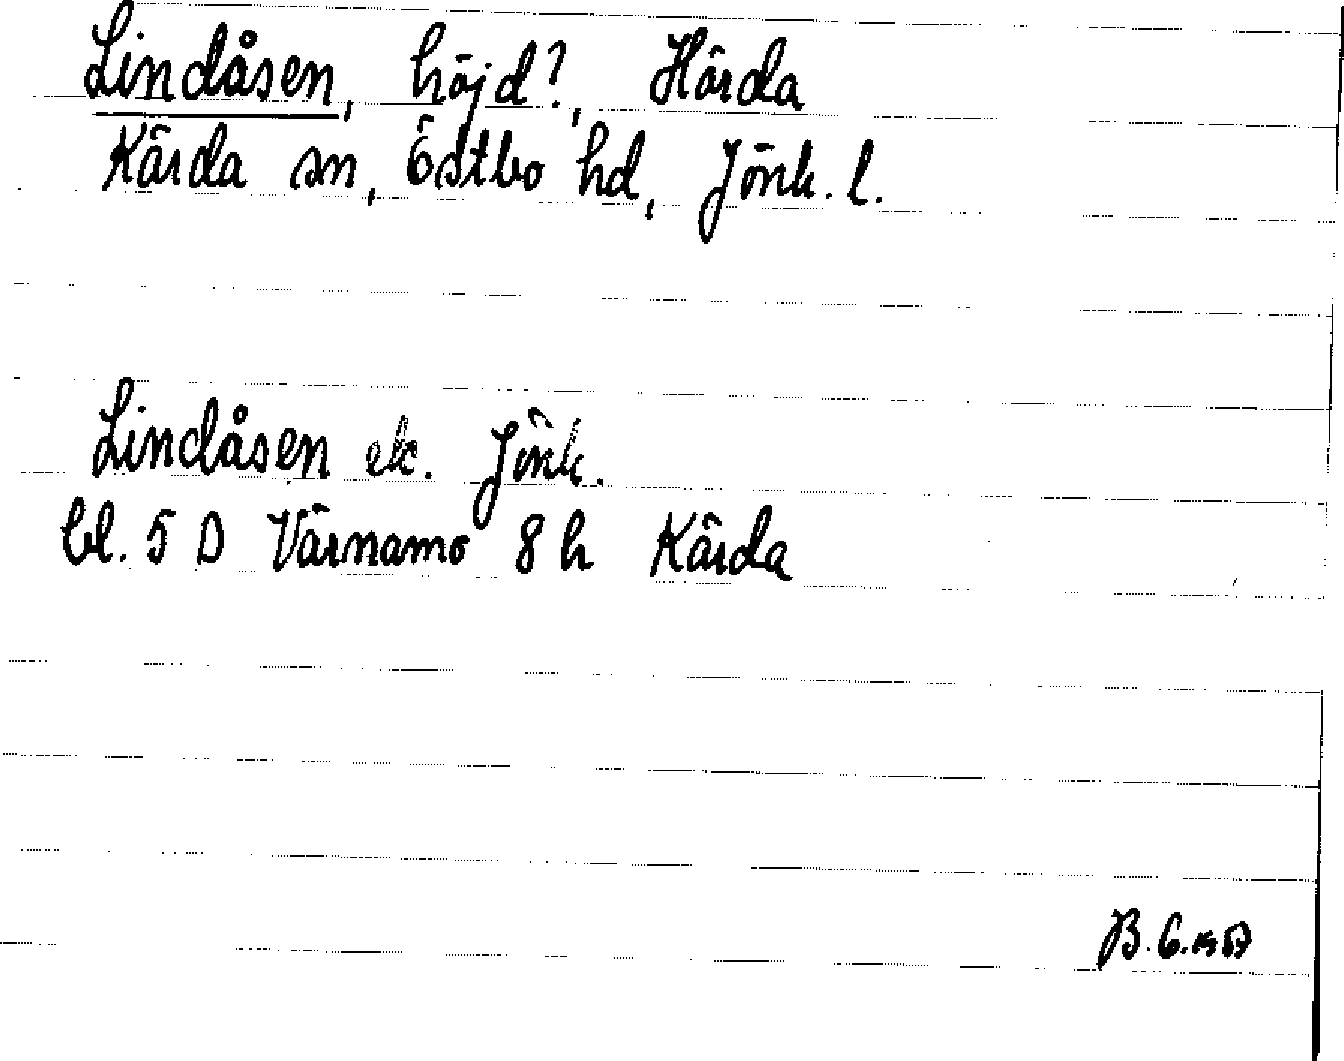 Lindåsen, höjd?, Hårda
Kärda sn, Östbo hd, Jönk. l.
Lindåsen ek. Jönk.
bl. 5 D Värnamo 8 h Kärda